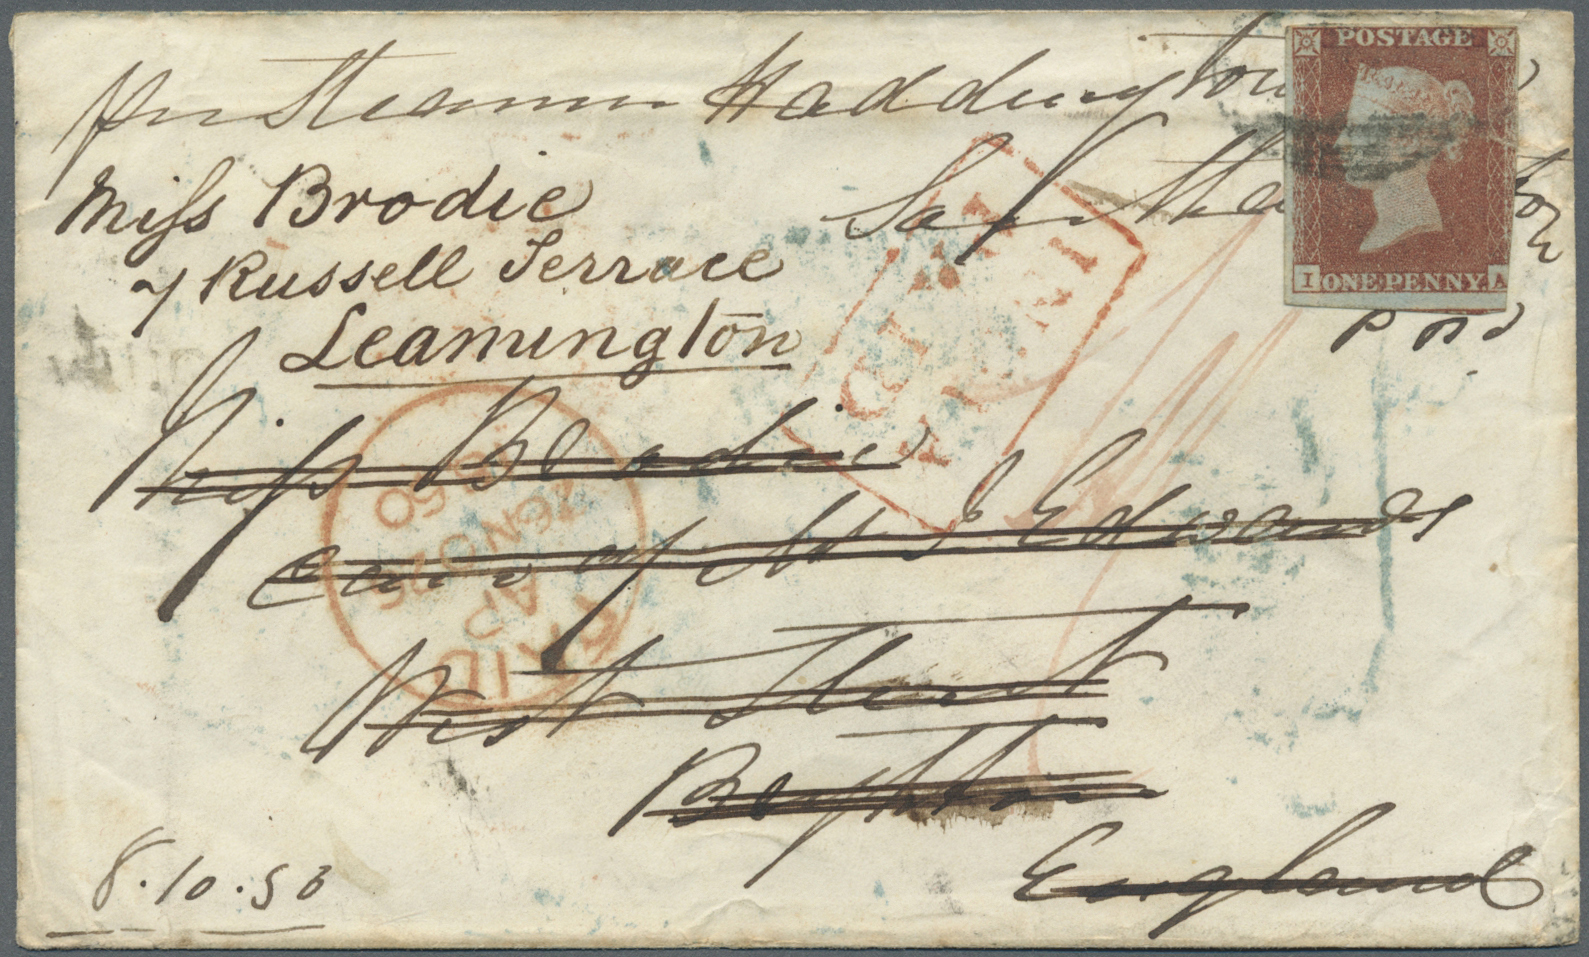 per Steamer Haddington
POSTAGE
Southampton
I ONE PENNY. A
Miss Brodie
7 Russell Terrace
Leamington
INDIA
Miss Brodie
care of Edwards
PAID
26 NO 26
1850
West Street
Brighton
England
8.10.50